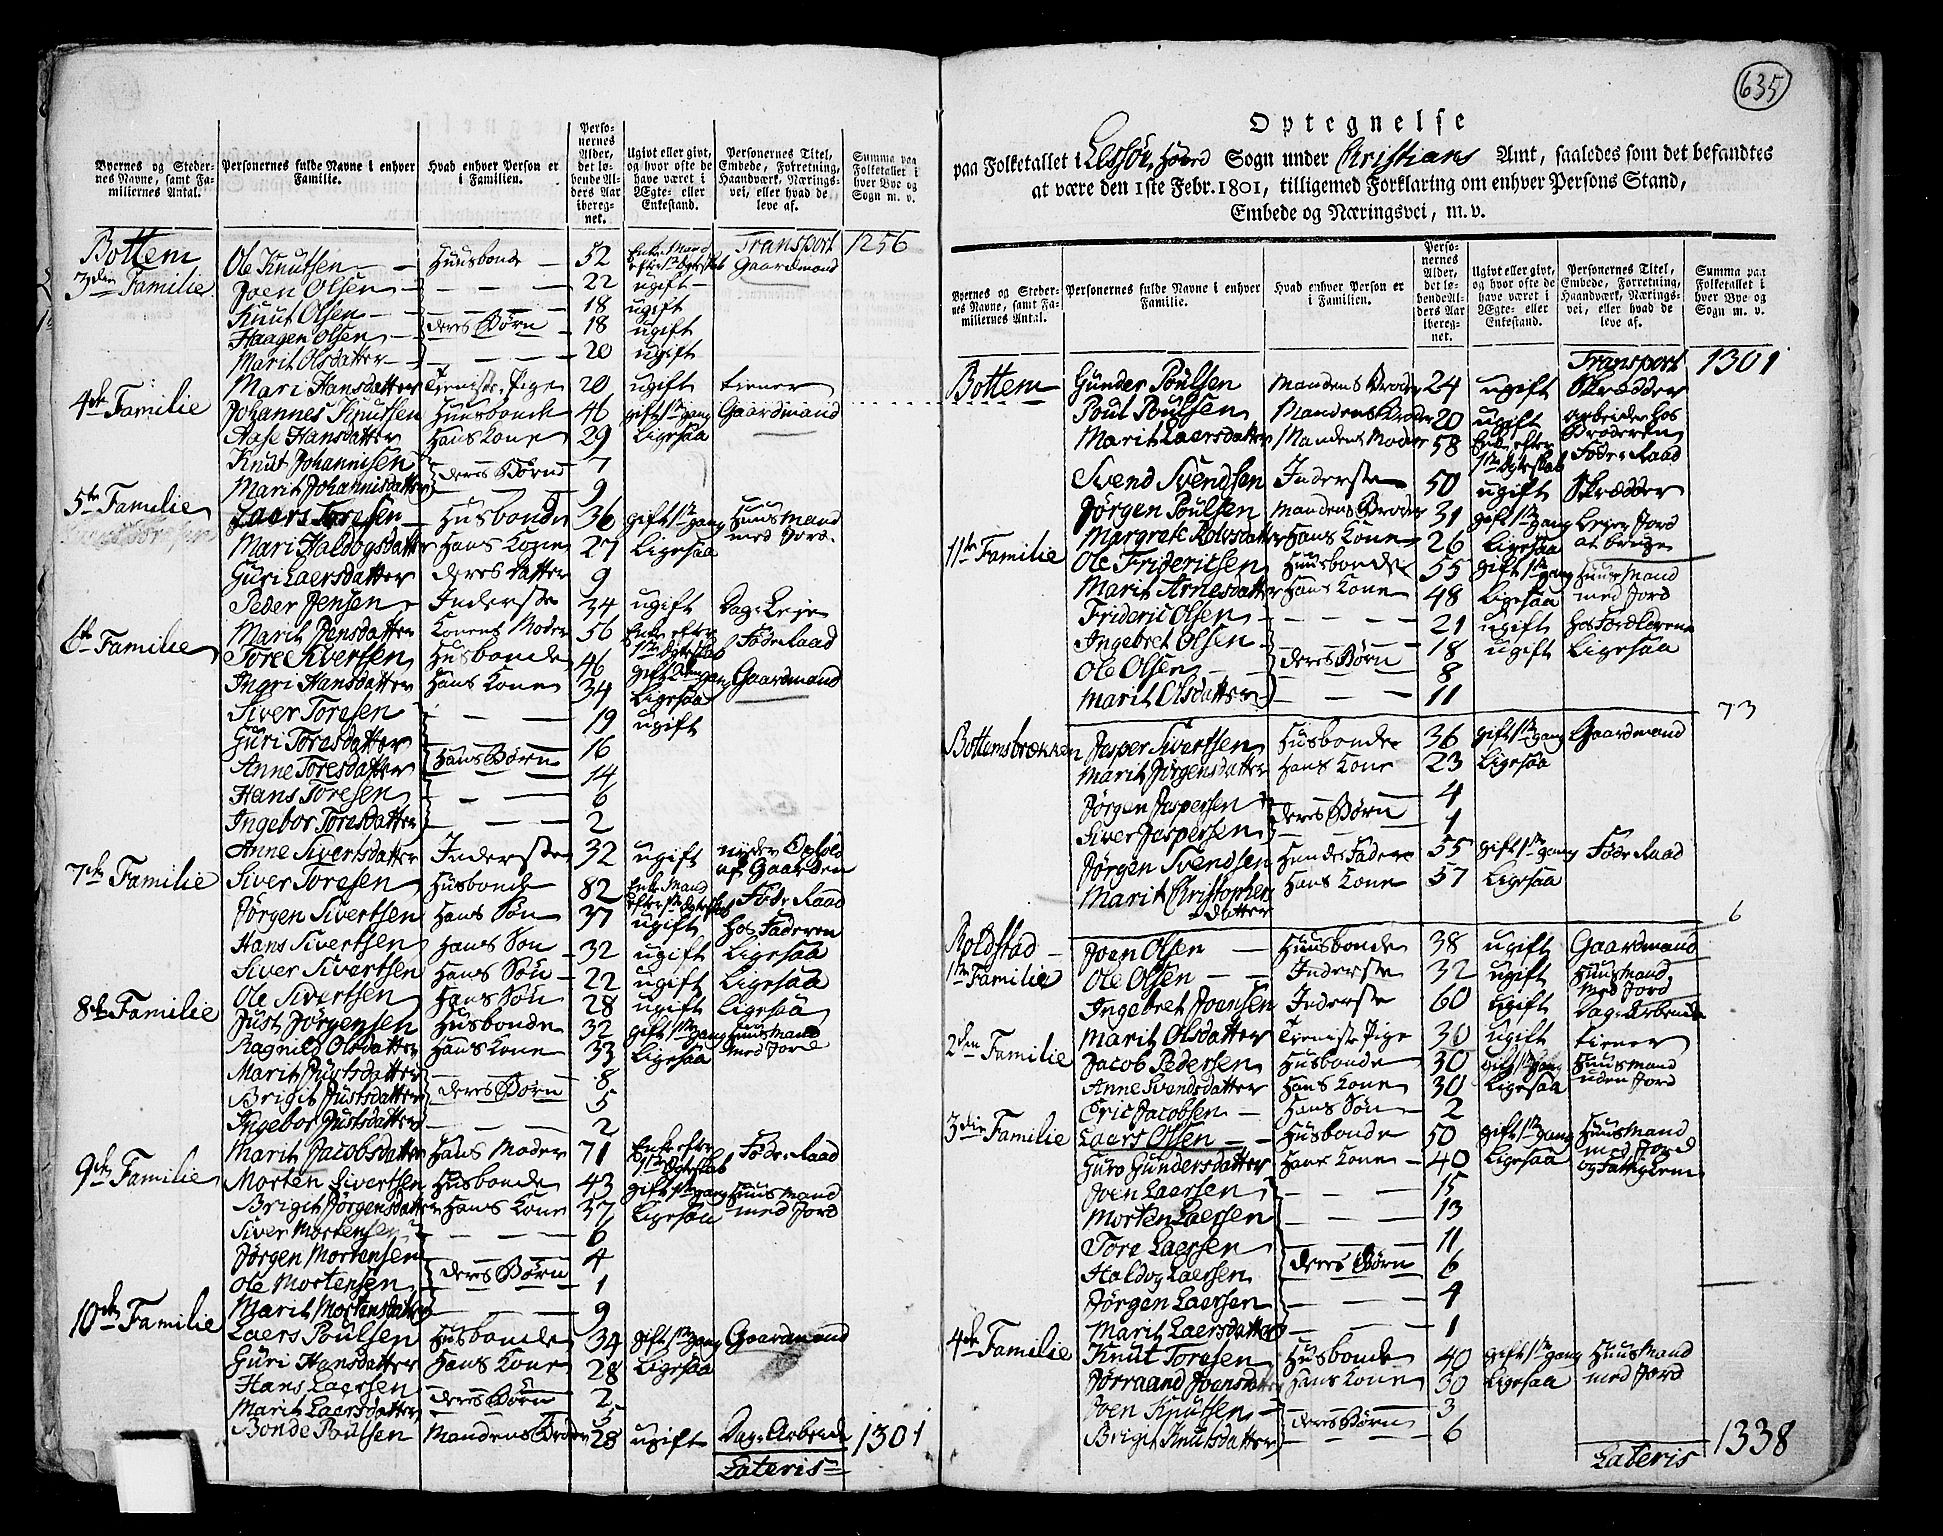 Byernes og Steder-
nes Navne, samt Fa-
miliernes Antal.
Personernes fulde Navne i enhver
Familie.
Hvad enhver Person er
i Familien.
Perso-
nernes
Alder,
det lø-
bende Al-
ders Aar
ibereg-
net.
Ugivt eller givt,
og hvor ofte de
have været i
Ægte- eller
Enkestand.
Personernes Titel,
Embede, Forretning,
Haandværk, Nærings-
vei, eller hvad de
leve af.
Summa paa
Folketallet i
hver Bye og
Sogn m. v.
Transport 1256
Bottem Ole Knutsen Huusbonde 52 Enke Mand efter 1ste Ægteskab Gaardmand
3die Familie Joen Olsen 22 ugift
Knut Olsen 18 ugift
Haagen Olsen deres Børn 18 ugift
Marit Olsdatter 20 ugift
Mari Hansdatter Tieniste Pige 20 ugift tiener
4de Familie Johannes Knutsen Huusbonde 46 gift 1ste gang Gaardmand
Aase Hansdatter Hans Kone 29 Ligesaa
Knut Johannisen deres Børn 7
Marit Johannisdatter 9
5te Familie Laers Toresen Husbonde 36 gift 1ste gang Huusmand med Jord
Mari Haldogsdatter Hans Kone 27 Ligesaa
Guri Laersdatter deres datter 9
Peder Jensen Inderste 34 ugift Dag-Leje
Marit Jensdatter Konens Moder 56 Enke efter 1ste Ægteskab Føde Raad
6te Familie Tore Sivertsen Husbonde 46 gift 2den gang Gaardmand
Ingri Hansdatter Hans Kone 34 Ligesaa
Siver Toresen 19 ugift
Guri Toresdatter 16
Anne Toresdatter Hans Børn 14
Hans Toresen 6
Ingebor Toresdatter 2
Anne Sivertsdatter Inderste 32 ugift nyder Ophold af Gaarden
7de Familie Siver Toresen Husbonde 82 Enke Mand efter 1ste Ægteskab Føde Raad
Jørgen Sivertsen Hans Søn 37 ugift hos Faderen
Hans Sivertsen Hans Søn 32 ugift Ligesaa
Siver Sivertsen Hans Søn 22 ugift Ligesaa
Ole Sivertsen Hans Søn 28 ugift Ligesaa
8de Familie Just Jørgensen Husbonde 32 gift 1ste gang Huusmand med Jord
Ragnild Olsdatter Hans Kone 33 Ligesaa
Marit Justsdatter 8
Brigit Justsdatter deres Børn 5
Ingebor Justsdatter 2
Marit Jacobsdatter Hans Moder 71 Enke efter 1ste Ægteskab Føde Raad
9de Familie Morten Sivertsen Husbonde 43 gift 1ste gang Huusmand med Jord
Brigit Jørgensdatter Hans Kone 37 Ligesaa
Siver Mortensen 6
Jørgen Mortensen 4
Ole Mortensen deres Børn 1
Marit Mortensdatter 9
10de Familie Laers Poulsen Husbonde 34 gift 1ste gang Gaardmand
Guri Hansdatter Hans Kone 28 Ligesaa
Hans Laersen 2
Marit Laersdatter deres Børn 5
Bonde Poulsen Mandens Broder 28 ugift Dag-Arbeide 1301
Lateris
635
Optegnelse
paa Folketallet i Sogn under Christians Amt, saaledes som det befandtes
at være den 1ste Febr. 1801, tilligemed Forklaring om enhver Persons Stand,
Embede og Næringsvei, m. v.
Byernes og Steder-
nes Navne, samt Fa-
miliernes Antal.
Personernes fulde Navne i enhver
Familie.
Hvad enhver Person er
i Familien.
Perso-
nernes
Alder,
det lø-
bende Al-
ders Aar
ibereg-
net.
Ugivt eller givt,
og hvor ofte de
have været i
Ægte- eller
Enkestand.
Personernes Titel,
Embede, Forretning,
Haandværk, Nærings-
vei, eller hvad de
leve af.
Summa paa
Folketallet i
hver Bye og
Sogn m. v.
Transport 1301
Bottem Gunder Poulsen Mandens Broder 24 ugift Skrædder
Poul Poulsen Mandens Broder 20 ugift arbeider hos Broderen
Marit Laersdatter Mandens Moder 58 Enke efter 1ste Ægteskab Føde Raad
Svend Svendsen Inderste 50 ugift Skrædder
Jørgen Poulsen Mandens Broder 31 gift 1ste gang Lejer Jord
Margrete Rolvsdatter Hans Kone 26 Ligesaa at bruge
11te Familie Ole Fridericsen Huusbonde 55 gift 1ste gang Huusmand med Jord
Marit Arnesdatter Hans Kone 48 Ligesaa
Frideric Olsen 21 ugift hos Forældrene
Ingebret Olsen 18 ugift Ligesaa
Ole Olsen deres Børn 8
Marit Olsdatter 11
73
Bottemsbrækken Jesper Sivertsen Husbonde 36 gift 1ste gang Gaardmand
Marit Jørgensdatter Hans Kone 23 Ligesaa
Jørgen Jespersen 4
Siver Jespersen deres Børn 1
Jørgen Svendsen Hendes Fader 55 gift 1ste gang Føde Raad
Marit Christophers datter Hans Kone 57 Ligesaa
6
Rolstad Joen Olsen Huusbonde 38 ugift Gaardmand
1ste Familie Ole Olsen Inderste 32 ugift Huusmand med Jord
Ingebret Joensen Inderste 60 ugift Dag-Arbeide
Marit Olsdatter Tieniste Pige 30 ugift tiener
2den Familie Jacob Pedersen Husbonde 30 gift 1ste gang Huusmand uden Jord
Anne Svendsdatter Hans Kone 30 Ligesaa
Eric Jacobsen Hans Søn 2
3die Familie Laers Olsen Husbonde 50 gift 1ste gang Huusmand med Jord
Guro Gundersdatter Hans Kone 40 Ligesaa og Fattig Lem
Joen Laersen 15
Morten Laersen 13
Tore Laersen 11
Haldog Laersen deres Børn 6
Jørgen Laersen 4
Marit Laersdatter 1
4de Familie Knut Toresen Husbonde 40 gift 1ste gang Huusmand med Jord
Jørraand Joensdatter Hans Kone 30 Ligesaa
Joen Knutsen 3
Brigit Knutsdatter deres Børn 6
Lateris 1338